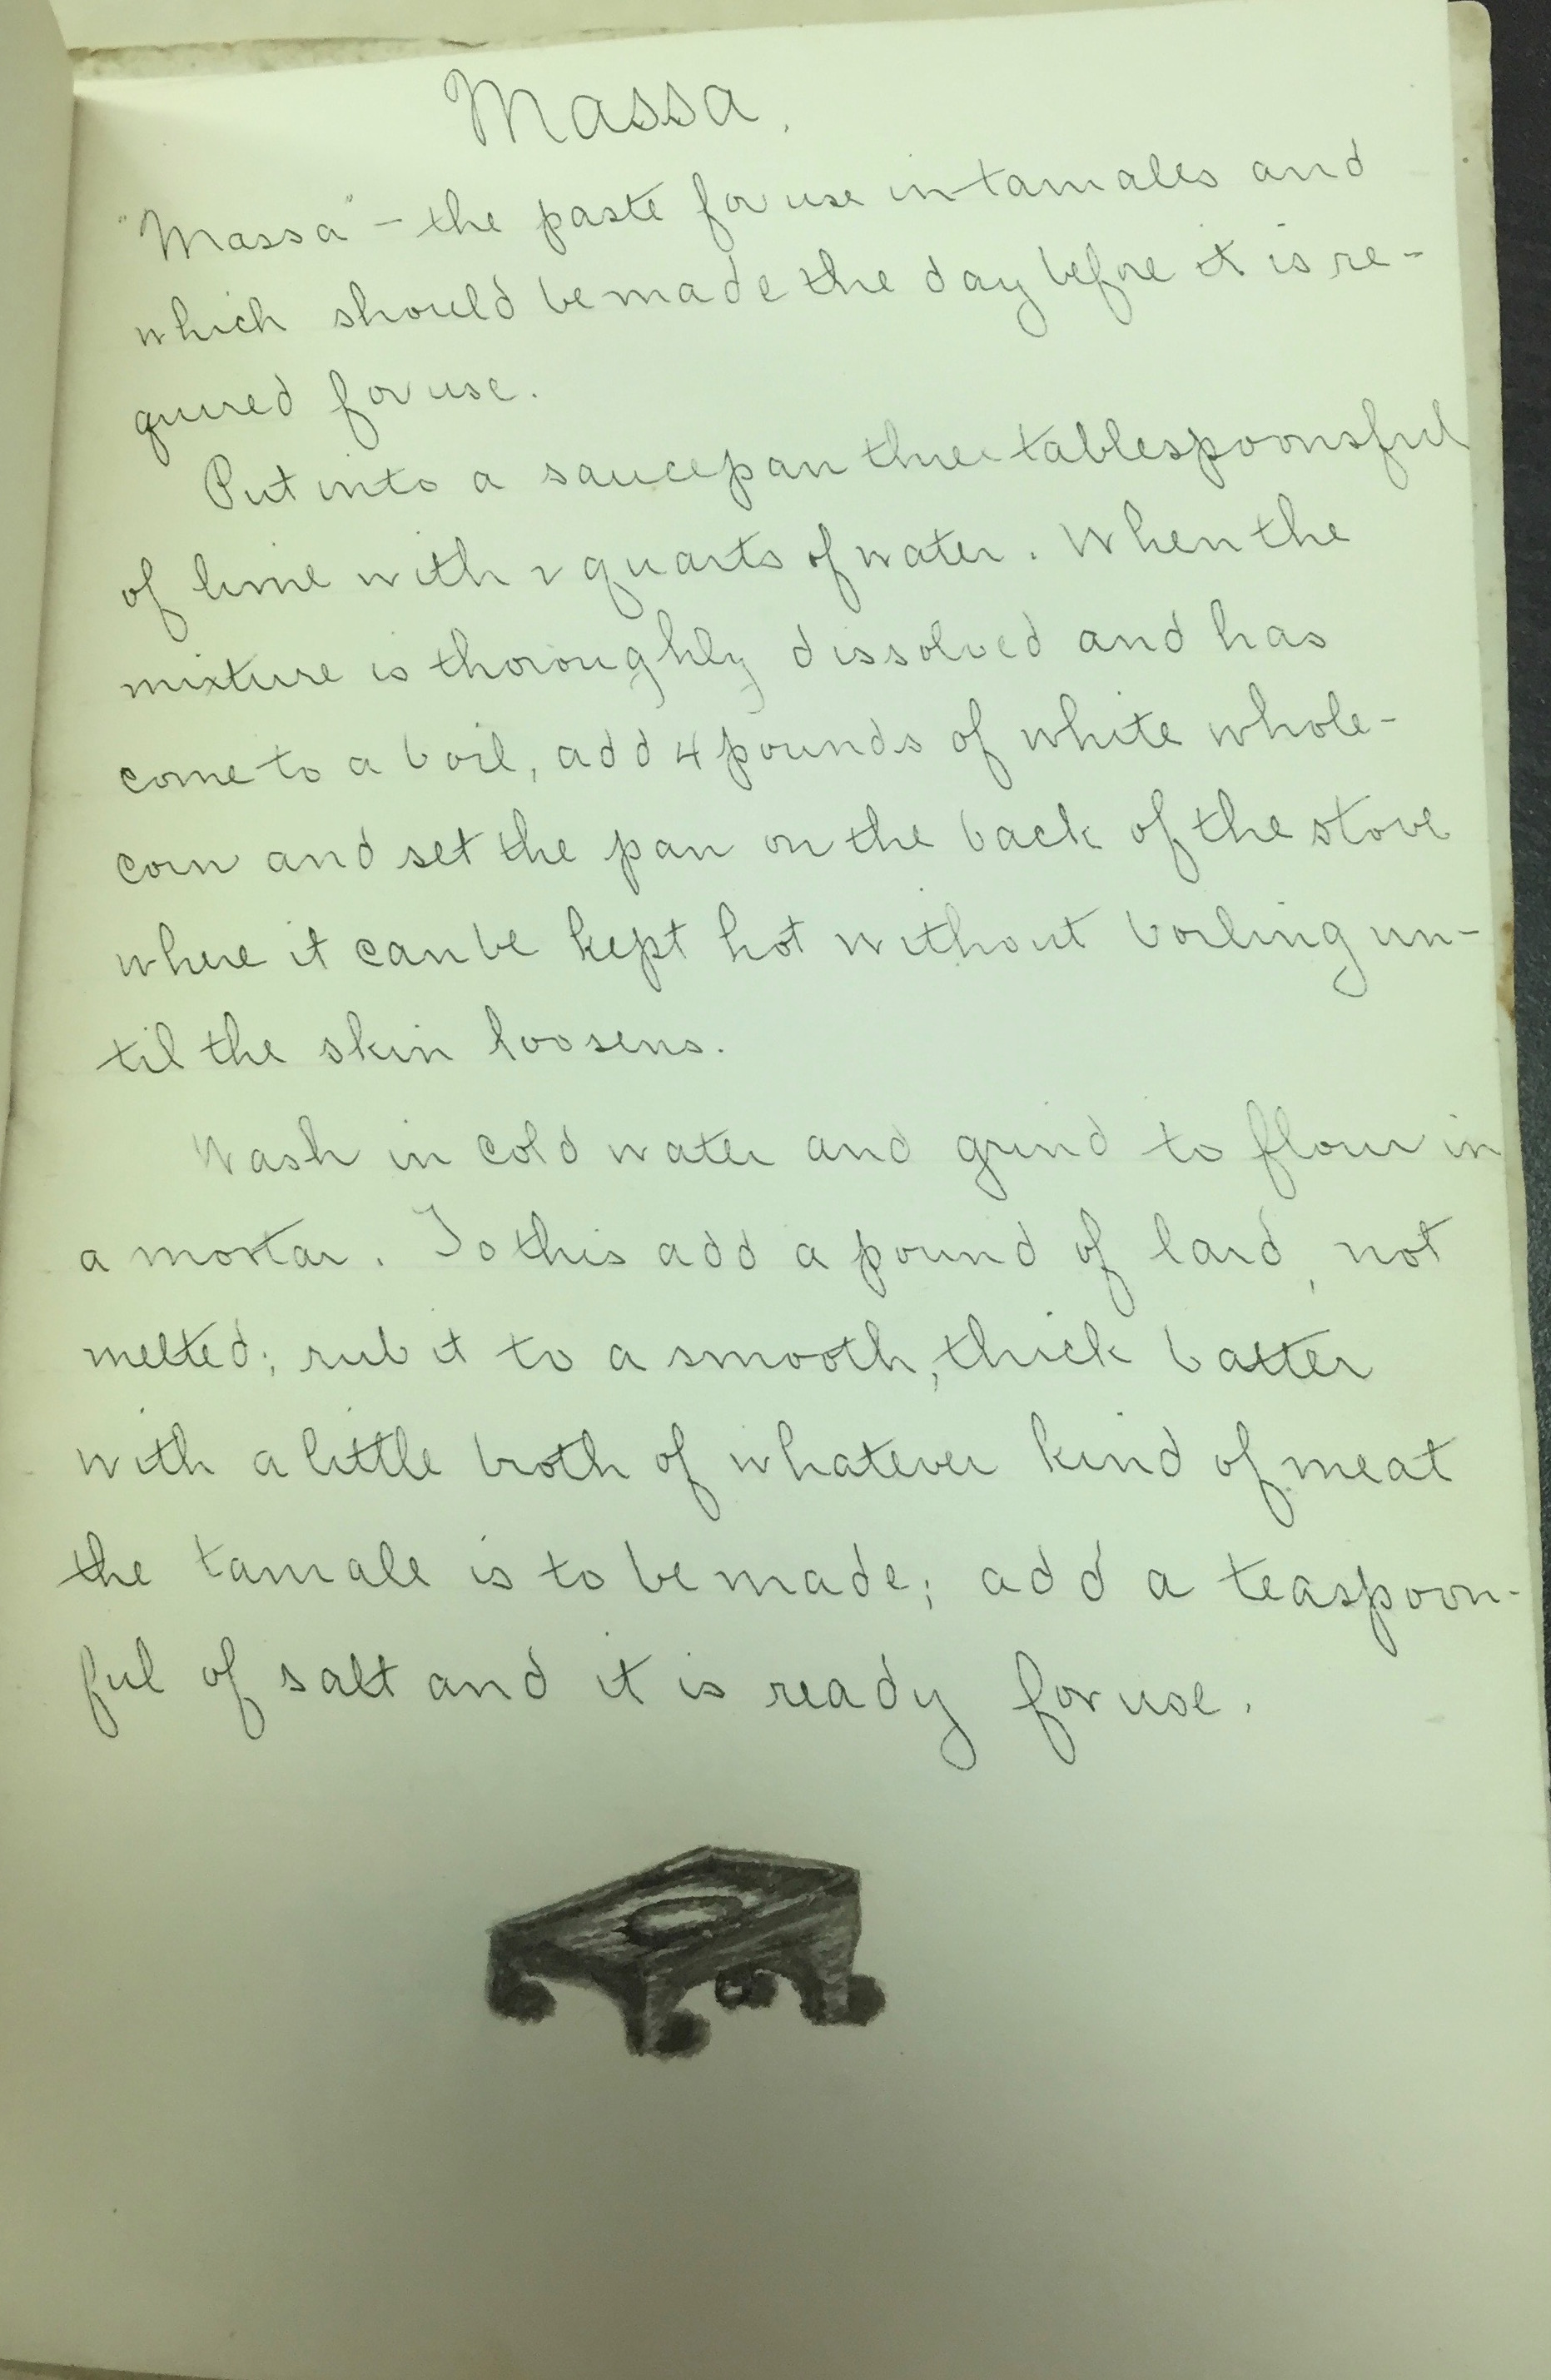 Massa.
"Massa" - the paste for use in tamales and
which should be made the day before it is re-
quired for use.
Put into a saucepan three tablespoonsful
of lime with 2 quarts of water. When the
mixture is thoroughly dissolved and has
come to a boil, add 4 pounds of white whole-
corn and set the pan on the back of the stove
where it can be kept hot without boiling un-
til the skin loosens.
Wash in cold water and grind to flour in
a mortar. To this add a pound of lard, not
melted; rub it to a smooth, thick batter
with a little broth of whatever kind of meat
the tamale is to be made; add a teaspoon-
ful of salt and it is ready for use.